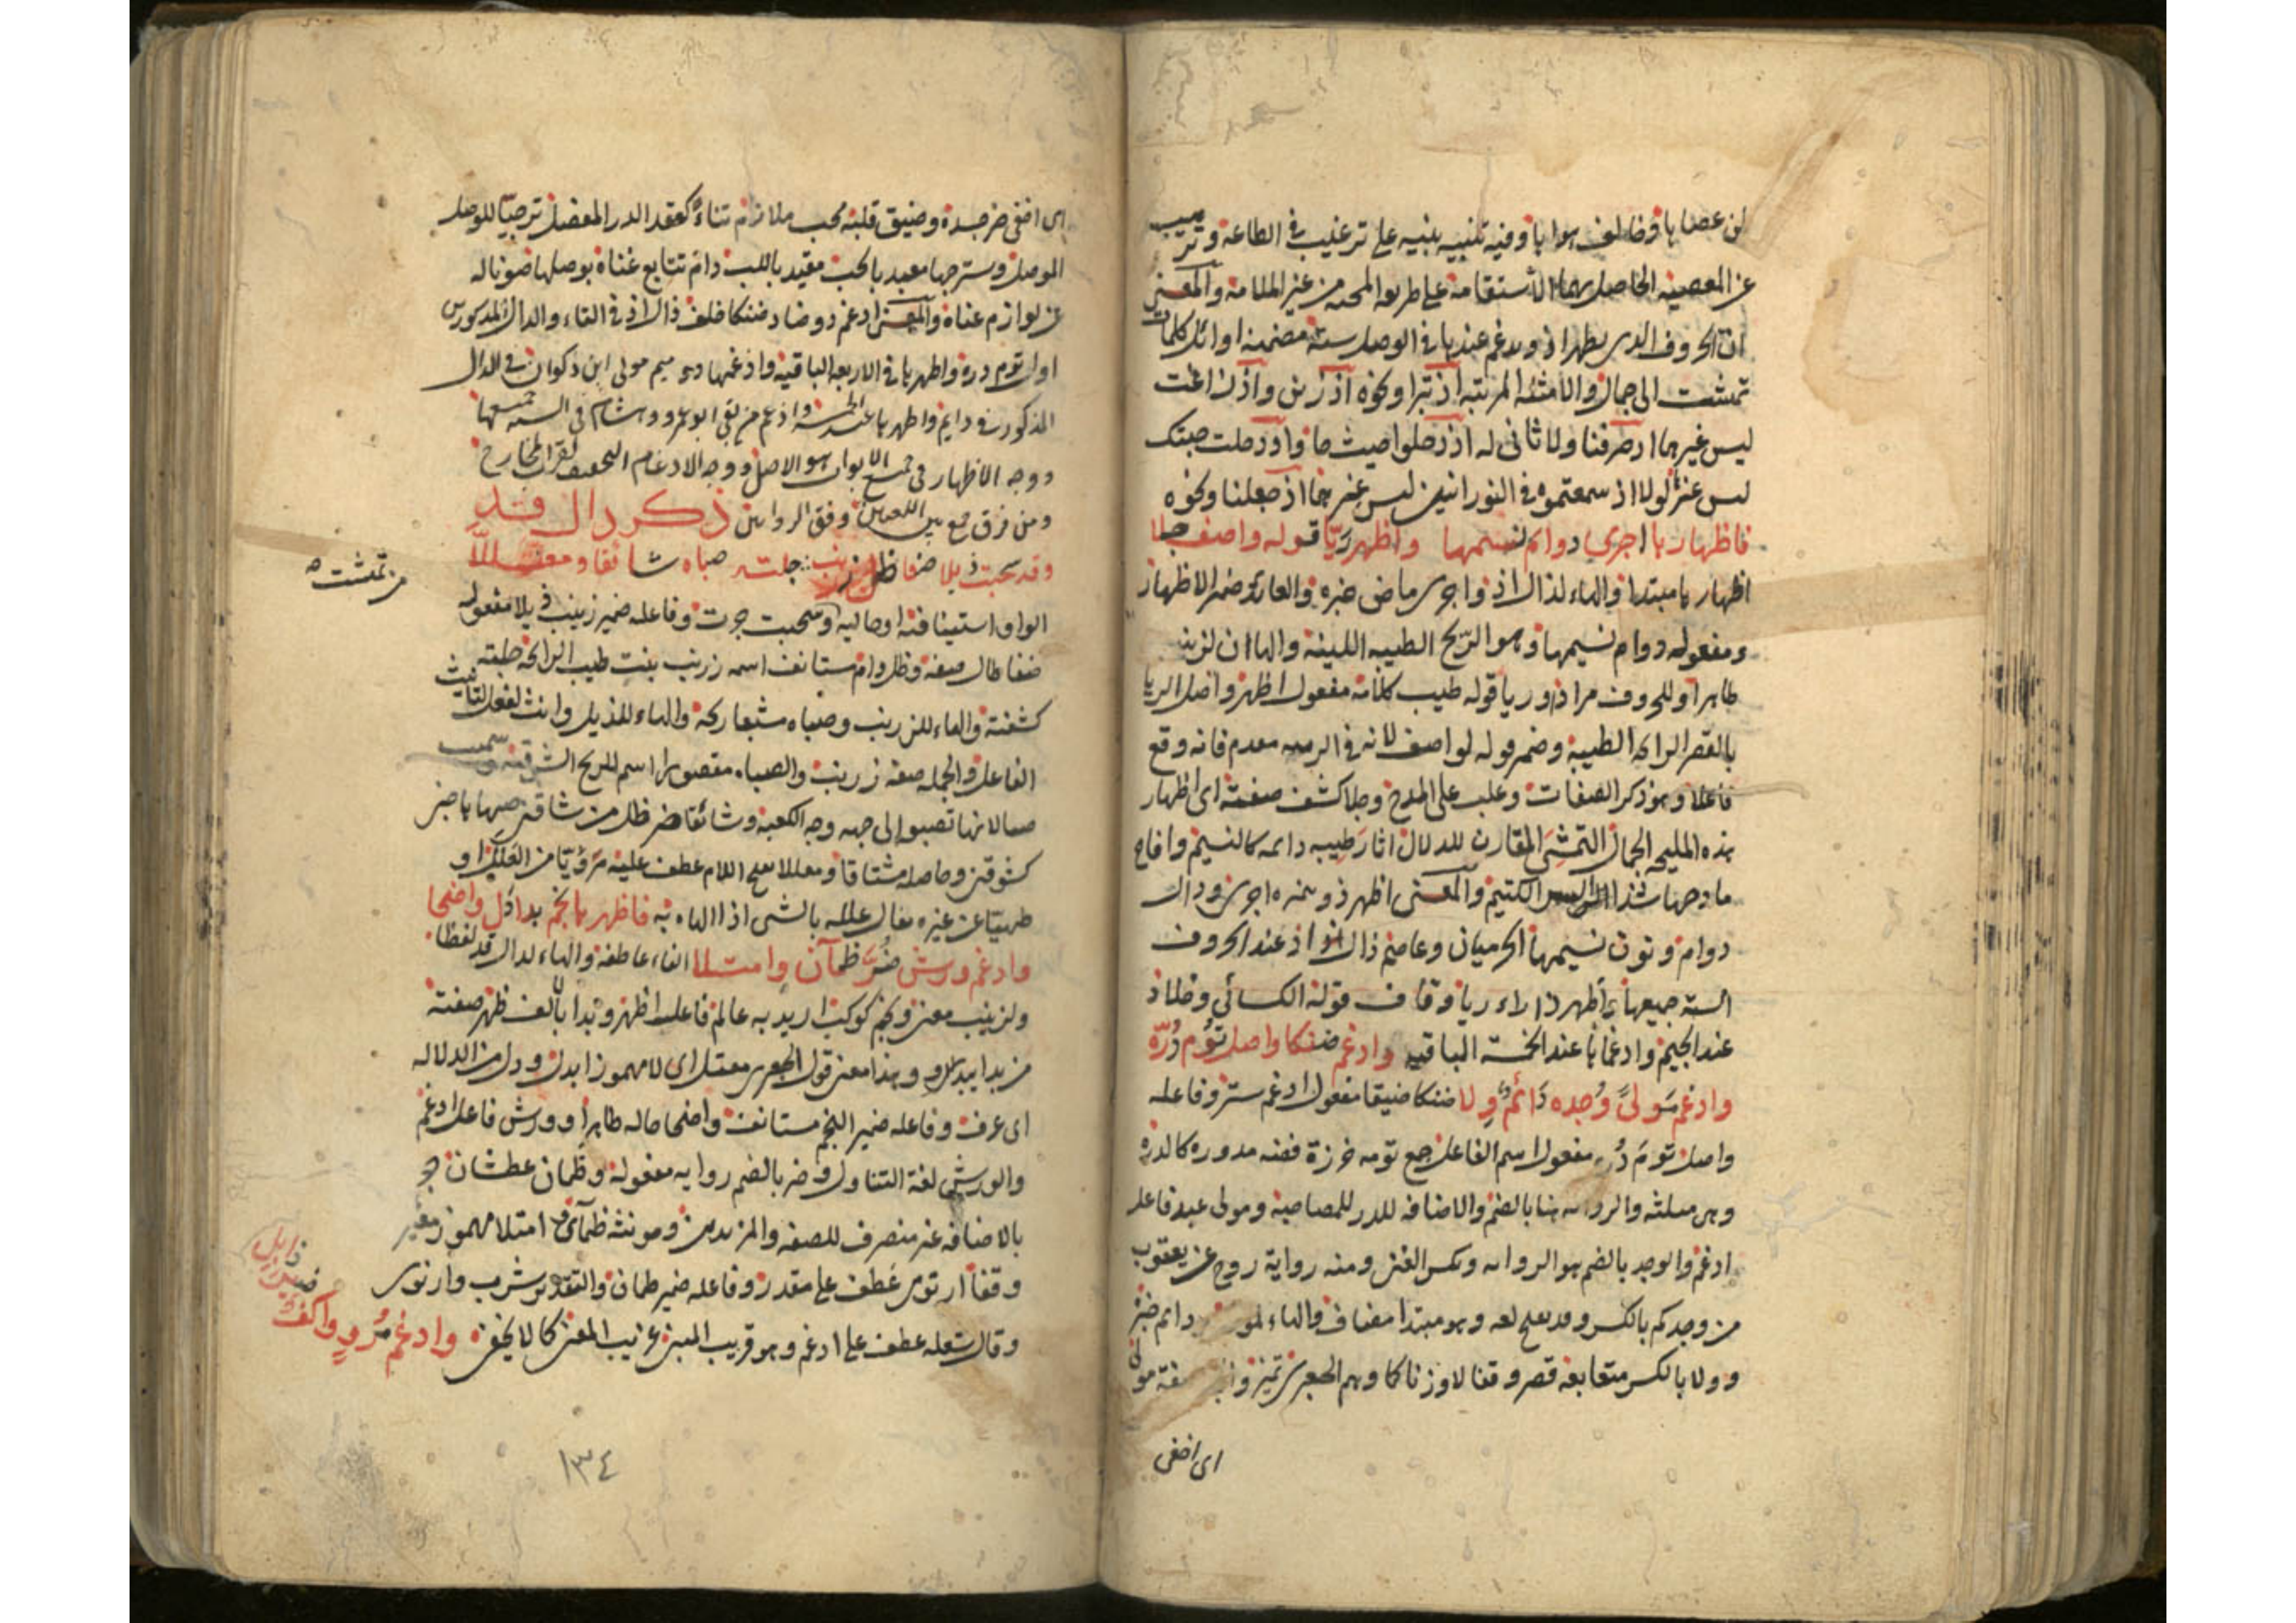 لمن عصاها وخالف هواها وفيه تنبيه بنيه على ترغيب في الطاعة وترهيب
عن المعصية الحاصل بهما الاستقامة على طريق المحبة من غير الملامة والمعنى
ان الحروف الذى يظهر اذ ويدغم عندها في الوصل ستة مضمنة اوائل كلمات
تمشت الى جمال والامثلة المرتبة اذ تبرا ونحوه اذ زين واذ زاغت
ليس غيرهما اذ صرفنا ولا ثانى له اذ دخلوا حيث جا واذ دخلت جنتك
ليس غيره لولا اذ سمعتموه في النور اثنين ليس غيرهما اذ جعلنا ونحوه
فاظهارها اجرى دوام نسيمها واظهر ريا قوله واصف جلا
اظهارها مبتدا والهاء لذال اذ واجرى ماضى خبره والعائد ضمير الاظهار
ومفعوله دوام نسيمها وهو الريح الطيبة اللينة والهاان لزينب
ظاهرا وللحروف مرادا وريا قوله طيب كلامه مفعول اظهر واصل الريا
بالقصر الرائحة الطيبة وضمير قوله لواصف لانه في الرتبة مقدم فانه وقع
فاعلا وهو ذكر الصفات وغلب على المدح وجلا كشف صفته اى اظهار
هذه المليحة الجمال التمشى المقارن للدلال اثار طيبه دائمة كالنسيم وافاح
مادحها شذا الكتيم والمعنى اظهر ذو همزة اجرى ودال
دوام ونون نسيمها الحرميان وعاصم ذال اذ عند الحروف
الستة جميعها واظهر ذا راء ريا وقاف قوله الكسائي وخلاد
عند الجيم وادغماها عند الخمسة الباقية وادغم ضنكا واصل توم دره
وادغم مولى وجده دائم ولا ضنكا ضيقا مفعول ادغم ستر وفاعله
واصل توم دره مفعول اسم الفاعل جمع تومه خرزة فضة مدورة كالدرة
وهى مثلثة والرواية هنا بالضم والاضافة للدر للمصاحبة ومولى عبد فاعل
ادغم والوجد بالضم هو الرواية وبكسر الغنى ومنه رواية روح عن يعقوب
من وجدكم بالكسر وقد بفتح لغة وهو مبتدا مضاف والهاء دائم خبره
وولا بالكسر متعابعة قصر وقفا لا وزنا كما وهم الجعبرى تميز
اى اخفى
اى اخفى ضر جسده وضيق قلبه محب ملازم ثناءه كعقد الدر المفضل ترجيا للوصل
الموصل وسترها معبد بالحب مقيد باللب دام تتابع غناه بوصلها ضونا له
عن لوازم عناه والمعنى ادغم ذو ضاد ضنكا خلف ذال اذ في التاء والدال المذكورين
اوائل توم دره واظهرها في الاربعة الباقية وادغمها ذو ميم مولى ابن ذكوان في الدال
المذكور في دايم واظهرها عند الخمسة وادغم من بقى ابو عمرو وهشام في الستة جميعها
ووجه الاظهار في جميع الابواب هو الاصل ووجه الادغام التخفيف لقرب المخارج
ومن فرق جمع بين اللغتين وفق الروايتين ذكر دال قد
وقد سحبت ذيلا ضفا ظل زرنب جلته صباه شائقا ومعللا
من تمشت
الواو استينافية او حالية وسحبت جرت وفاعله ضمير زينب ذيلا مفعوله
ضفا طال صفة وظل دام مستانف اسمه زرنب بنت طيب الرائحة جلته
كشفته والهاء للزرنب وصباه مشبعا ركبه والهاء للذيل وانث الفعل لتانيث
الفاعل والجملة صفة زرنب والصباء مقصور اسم للريح الشرقية وسميت
صبا لانها تصبوا الى جهة وجه الكعبة وشائقا خبر ظل من شاقني
كشوقني وحاصله مشتاقا ومعللا بفتح اللام عطف عليه
طيبا عن غيره يقال علله بالشى اذا الهاه به فاظهر ها نجم بدا دل واضحا
وادغم ورش ضر ظمآن وامتلا الفاء عاطفة والهاء لدال قد لفظا
ولزينب معنى ونجم كوكب اريد به عالم فاعل اظهر وبدا بالف ظهر صفته
من بدا يبدو وهذا معنى قول الجعبرى معتل اى لا مهموز ابدل ودل من الدلالة
اى عرف وفاعله ضمير النجم مستانف واضحا حال ظاهرا وورش فاعل ادغم
والورش لغة التناول وضر بالضم رواية مفعوله وظمآن عطشان جر
بالاضافة غير منصرف للصفة والمزيدتين ومونثه ظمأى وامتلا مهموز مغير
وقفا ارتوى عطف على مقدر وفاعله ضمير ظمان والتقدير شرب وارتوى
وقال شعلة عطف على ادغم وهو قريب المبنى غريب المعنى كما لا يخفى وادغم مرو واكف
ضير ذابل
١٣٤